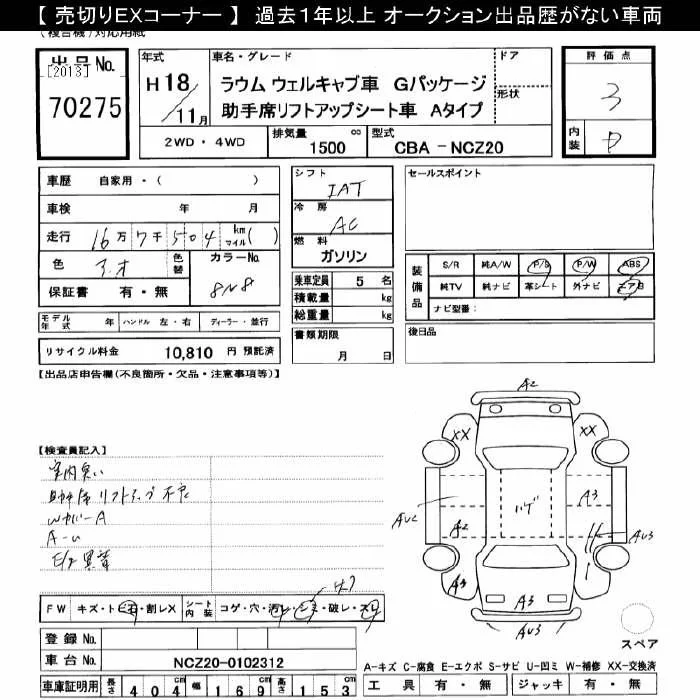 【 売切りEXコーナー 】 過去1年以上 オークション出品歴がない車両
(複合機) 対応用紙
出品No.
[2013]
70275
年式
H 18 / 11月
車名・グレード
ラウム ウェルキャブ車 Gパッケージ
助手席リフトアップシート車 Aタイプ
ドア
形状
2WD・4WD
排気量 cc
1500
型式
CBA - NCZ20
評価点
3
内装
D
車歴 自家用・( )
車検 年 月
走行 16万7千504 km マイル( )
色
色替
カラーNo.
8N8
保証書 有・無
シフト
IAT
冷房
AC
燃料
ガソリン
乗車定員 5 名
積載量 kg
総重量 kg
セールスポイント
装備品
S/R 純A/W P/S P/W ABS
純TV 純ナビ 革シート 外ナビ エアB
ナビ型番:
モデル年式 年 ハンドル 左・右 ディーラー・並行
リサイクル料金 10,810 円 預託済
書類期限
月 日
後日品
【出品店申告欄(不良箇所・欠品・注意事項等)】
【検査員記入】
室内臭い
助手席リフトアップ不良
Wカバー A
A-U
E/g 異音
A2
XX
XX
ハゲ
A3
AU2
A2
AU3
A3
A3
AU3
スペア
FW キズ・トビ石・割レX シート内装 コゲ・穴・汚レ・シミ・破レ・スレ
登録No.
車台No. NCZ20-0102312
車庫証明用 長さ 404 幅 169 高さ 153
A-キズ C-腐食 E-エクボ S-サビ U-凹ミ W-補修 XX-交換済
工具 有・無 ジャッキ 有・無